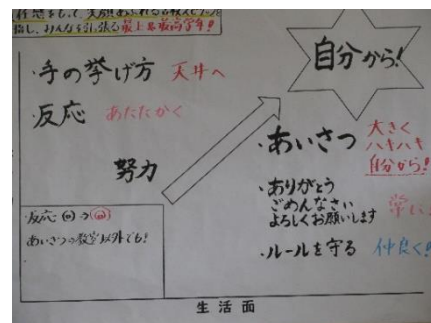 指し、みんなを引っ張る最上級の最高学年!
自分から!
・手の挙げ方 天井へ
・反応 あたたかく
努力
・あいさつ 大きく
ハキハキ
自分から!
・ありがとう
ごめんなさい
よろしくお願いします
・ルールを守る 仲良く!
・反応
あいさつ→教室以外でも!
生活面